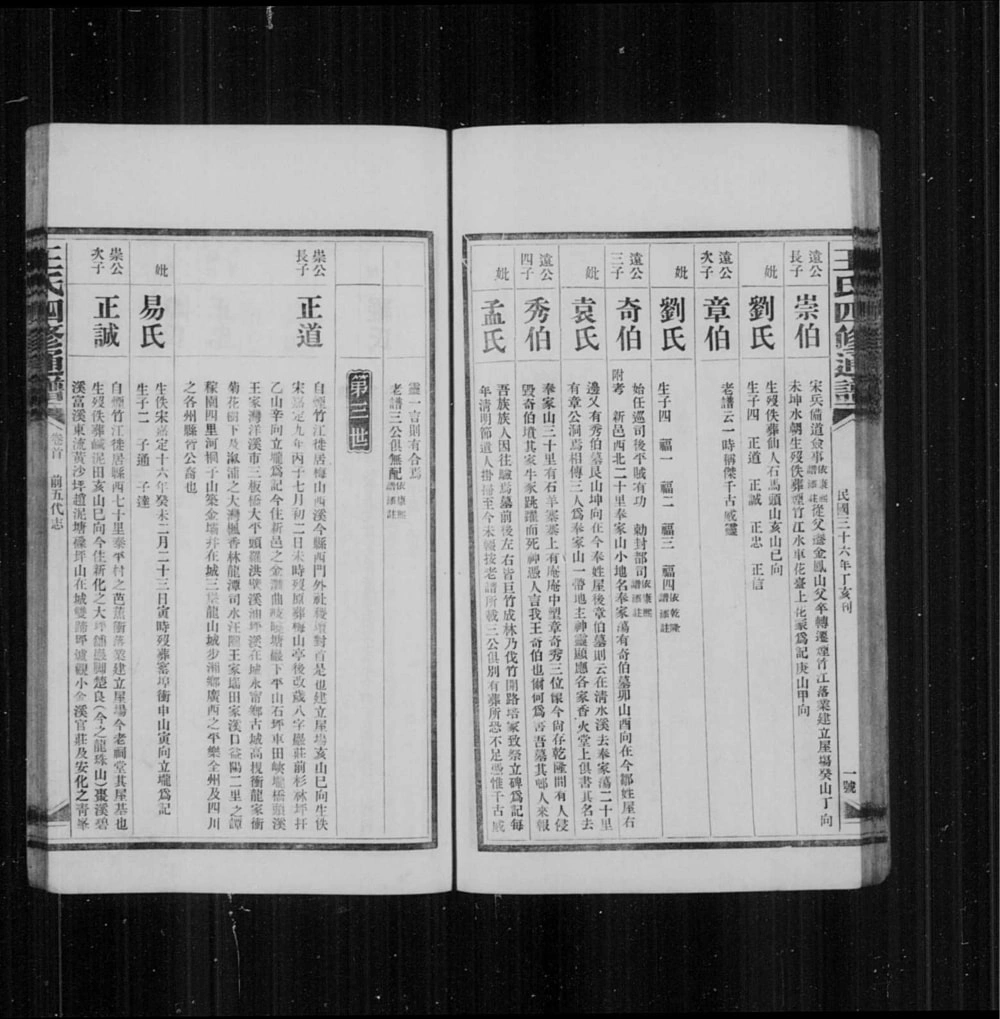 王氏四修通譜
民國三十六年丁亥刊
一號
遠公長子
崇伯
宋兵備道僉事依康熙譜添註從父遷金鳳山父卒轉遷煙竹江落業建立屋場癸山丁向
未坤水朝生歿佚葬煙竹江水車花臺上花為記庚山甲向
妣
劉氏
生歿佚葬仙人石馬頭山亥山巳向
生子四 正道 正誠 正忠 正信
遠公次子
章伯
老譜云一時稱傑千古威靈
妣
劉氏
生子四 福一 福二 福三 福四依乾隆譜添註
遠公三子
奇伯
始任巡司後平賊有功 勅封都司依康熙譜添註
附考 新邑西北二十里奉家山小地名奉家蕩有奇伯墓卯山酉向在今鄒姓屋右
邊又有秀伯墓艮山坤向在今奉姓屋後章伯墓則云在清水溪去奉家蕩二十里
妣
袁氏
有章公洞焉相傳三人為奉家山一帶地主神靈顯應各家香火堂上俱書其名去
奉家山三十里有石羊寨寨上有庵庵中塑章奇秀三位像今尚存乾隆間有人侵
遠公四子
秀伯
毀奇伯墳其家牛豕跳躍而死神憑人言我王奇伯也爾何為害吾墓其鄉人來報
吾族族人因往驗焉墓前後左右皆巨竹成林乃伐竹開路培冢致祭立碑為記每
妣
孟氏
年清明節道人掛掃至今未輟按老譜所載三公俱別有葬所恐不足憑惟千古威
靈一言則有合焉
老譜三公俱無配依康熙譜添註
第三世
崇公長子
正道
自煙竹江徙居梅山西溪今縣西門外社後塅對首是也建立屋場亥山巳向生佚
宋嘉定九年丙子七月初二日未時歿原葬梅山亭後改葬八字巖莊前杉林坪扦
乙山辛向立壠為記今住新邑之金灘曲塘巖下平山石坪車田峽壠橋頭溪
王家灣洋溪市三板橋大平頭羅洪壁溪油坪溪在城永甯鄉古城高梘衝龍家衝
菊花樹下及溆浦之大灣楓香林龍潭司水汪王家塌田家溪口益陽二里之譚
稼園四里河壩子山築金壩井在城三臺龍山城步湘鄉廣西之平樂全州及四川
之各州縣皆公裔也
妣
易氏
生佚宋嘉定十六年癸未二月二十三日寅時歿葬窰埠衝申山寅向立壠為記
生子二 子通 子達
崇公次子
正誠
自煙竹江徙居縣西七十里泰平村之芭蕉衝落業建立屋場今老祠堂其屋基也
生歿佚葬鹹泥田亥山巳向今住新化之大坪舖巖腳楚良（今之龍珠山）棗溪碧
溪富溪東流黃沙坪趙泥塘欏坪山在城雙蹄坪瀘觀小金溪官莊及安化之青峯
王氏四修通譜
卷首 前五代志